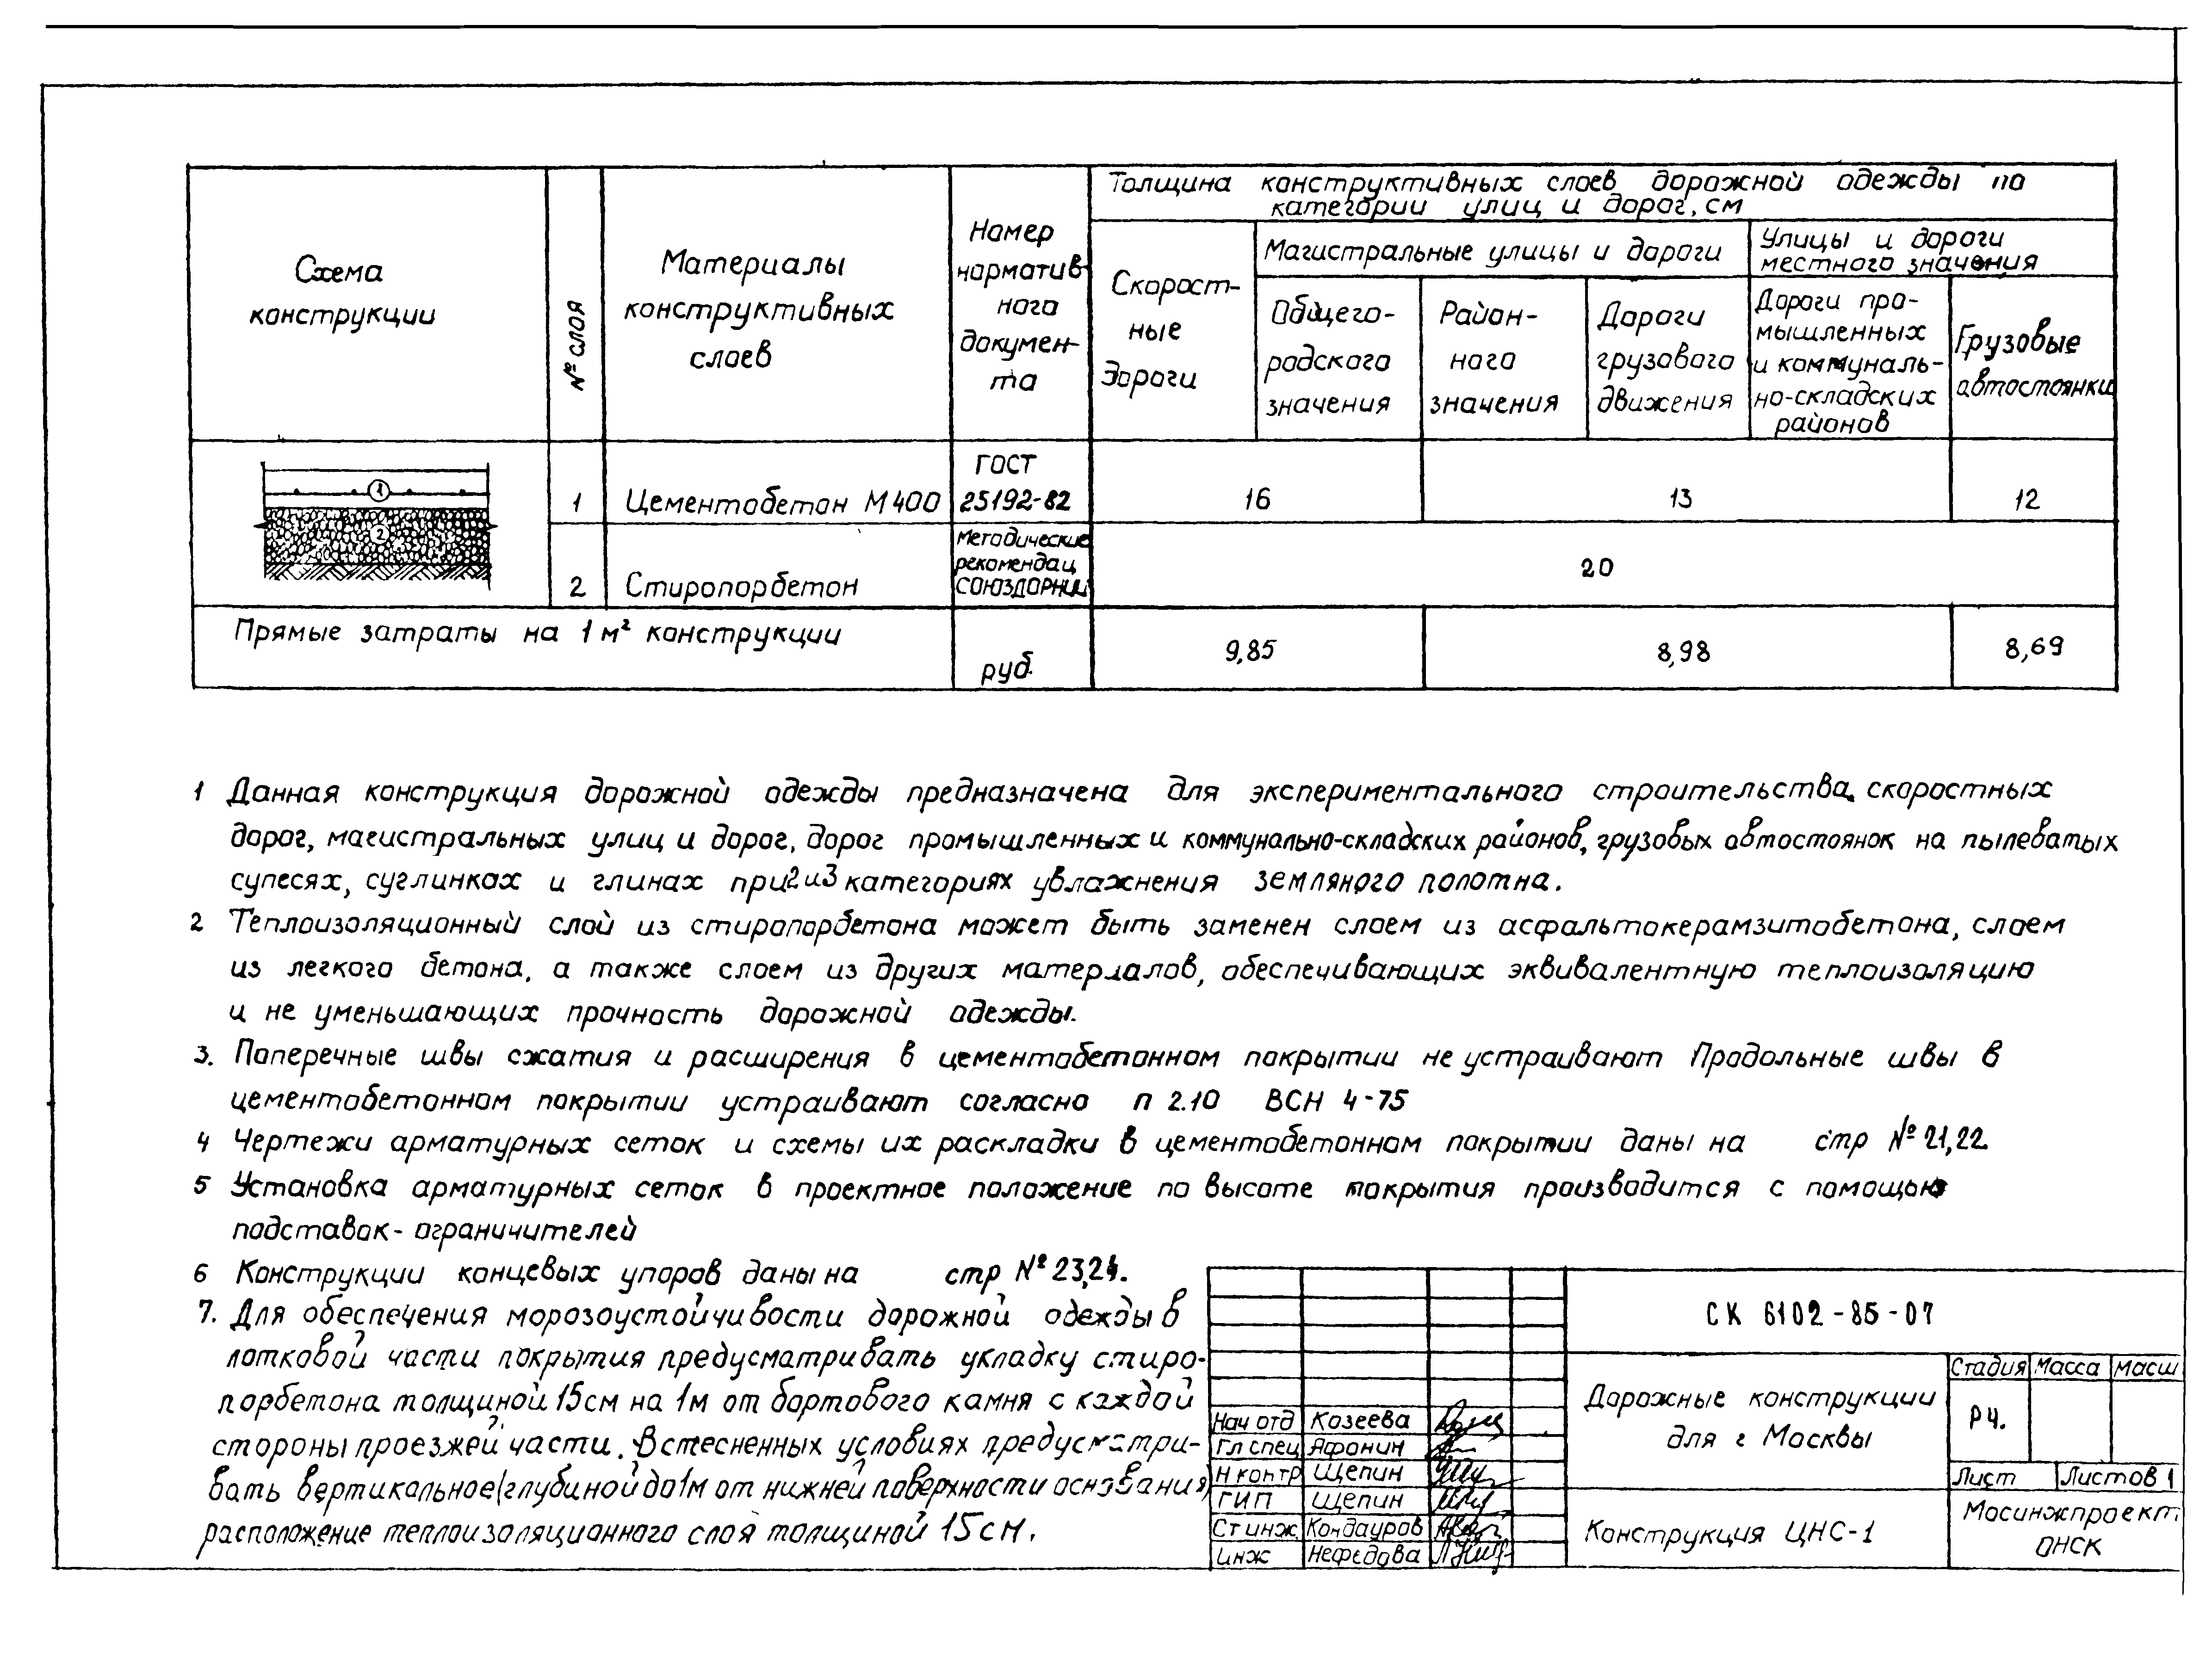 Схема
конструкции
№ слоя
Материалы
конструктивных
слоев
Номер
норматив-
ного
докумен-
та
Толщина конструктивных слоев дорожной одежды по
категории улиц и дорог, см
Скорост-
ные
дороги
Магистральные улицы и дороги
Общего-
родского
значения
Район-
ного
значения
Дороги
грузового
движения
Улицы и дороги
местного значения
Дороги про-
мышленных
и коммуналь-
но-складских
районов
Грузовые
автостоянки
1
2
1
Цементобетон М400
ГОСТ
25192-82
16
13
12
2
Стиропорбетон
Методические
рекомендац
СОЮЗДОРНИИ
20
Прямые затраты на 1 м² конструкции
руб.
9,85
8,98
8,69
1 Данная конструкция дорожной одежды предназначена для экспериментального строительства скоростных
дорог, магистральных улиц и дорог, дорог промышленных и коммунально-складских районов, грузовых автостоянок на пылеватых
супесях, суглинках и глинах при 2 и 3 категориях увлажнения земляного полотна.
2 Теплоизоляционный слой из стиропорбетона может быть заменен слоем из асфальтокерамзитобетона, слоем
из легкого бетона, а также слоем из других материалов, обеспечивающих эквивалентную теплоизоляцию
и не уменьшающих прочность дорожной одежды.
3. Поперечные швы сжатия и расширения в цементобетонном покрытии не устраивают Продольные швы в
цементобетонном покрытии устраивают согласно п 2.10 ВСН 4-75
4 Чертежи арматурных сеток и схемы их раскладки в цементобетонном покрытии даны на стр № 21,22
5 Установка арматурных сеток в проектное положение по высоте покрытия производится с помощью
подставок-ограничителей
6 Конструкции концевых упоров даны на стр № 23,24.
7. Для обеспечения морозоустойчивости дорожной одежды в
лотковой части покрытия предусматривать укладку стиро-
порбетона толщиной 15см на 1м от бортового камня с каждой
стороны проезжей части. В стесненных условиях предусматри-
вать вертикальное (глубиной до 1м от нижней поверхности основания)
расположение теплоизоляционного слоя толщиной 15см.
СК 6102-85-07
Дорожные конструкции
для г Москвы
Стадия Масса Масш
РЧ.
Лист Листов 1
Нач отд Козеева
Гл спец Афонин
Н контр Щепин
ГИП Щепин
Ст инж. Кондауров
инж Нефедова
Конструкция ЦНС-1
Мосинжпроект
ОНСК